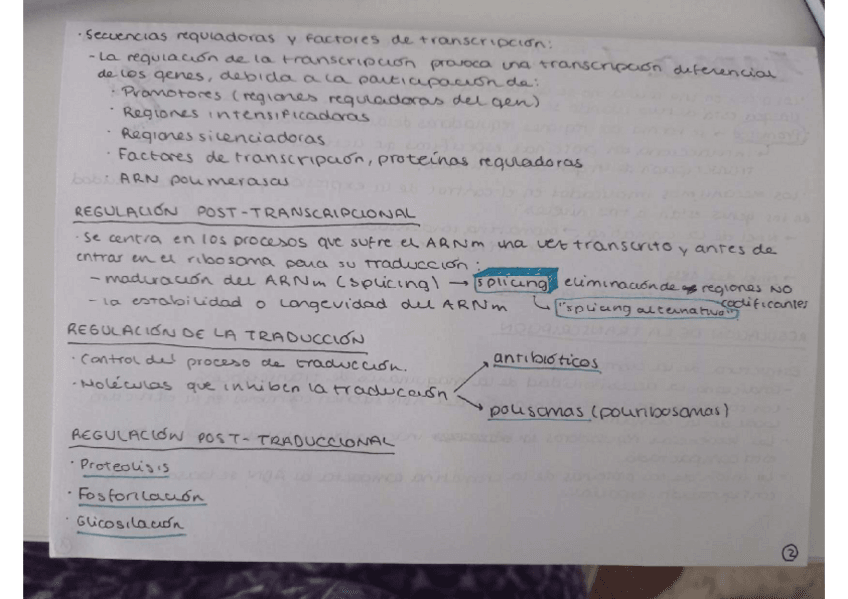 · Secuencias reguladoras y factores de transcripción:
- La regulación de la transcripción provoca una transcripción diferencial
de los genes, debida a la participación de:
· Promotores (regiones reguladoras del gen)
· Regiones intensificadoras
· Regiones silenciadoras
· Factores de transcripción, proteínas reguladoras
· ARN polimerasas
REGULACIÓN POST-TRANSCRIPCIONAL
· Se centra en los procesos que sufre el ARNm una vez transcrito y antes de
entrar en el ribosoma para su traducción:
- maduración del ARNm (splicing) → splicing eliminación de regiones NO
codificantes
- la estabilidad o longevidad del ARNm ↳ "splicing alternativo"
REGULACIÓN DE LA TRADUCCIÓN
· Control del proceso de traducción.
· Moléculas que inhiben la traducción
antibióticos
polisomas (poliribosomas)
REGULACIÓN POST-TRADUCCIONAL
· Proteolisis
· Fosforilación
· Glicosilación
2